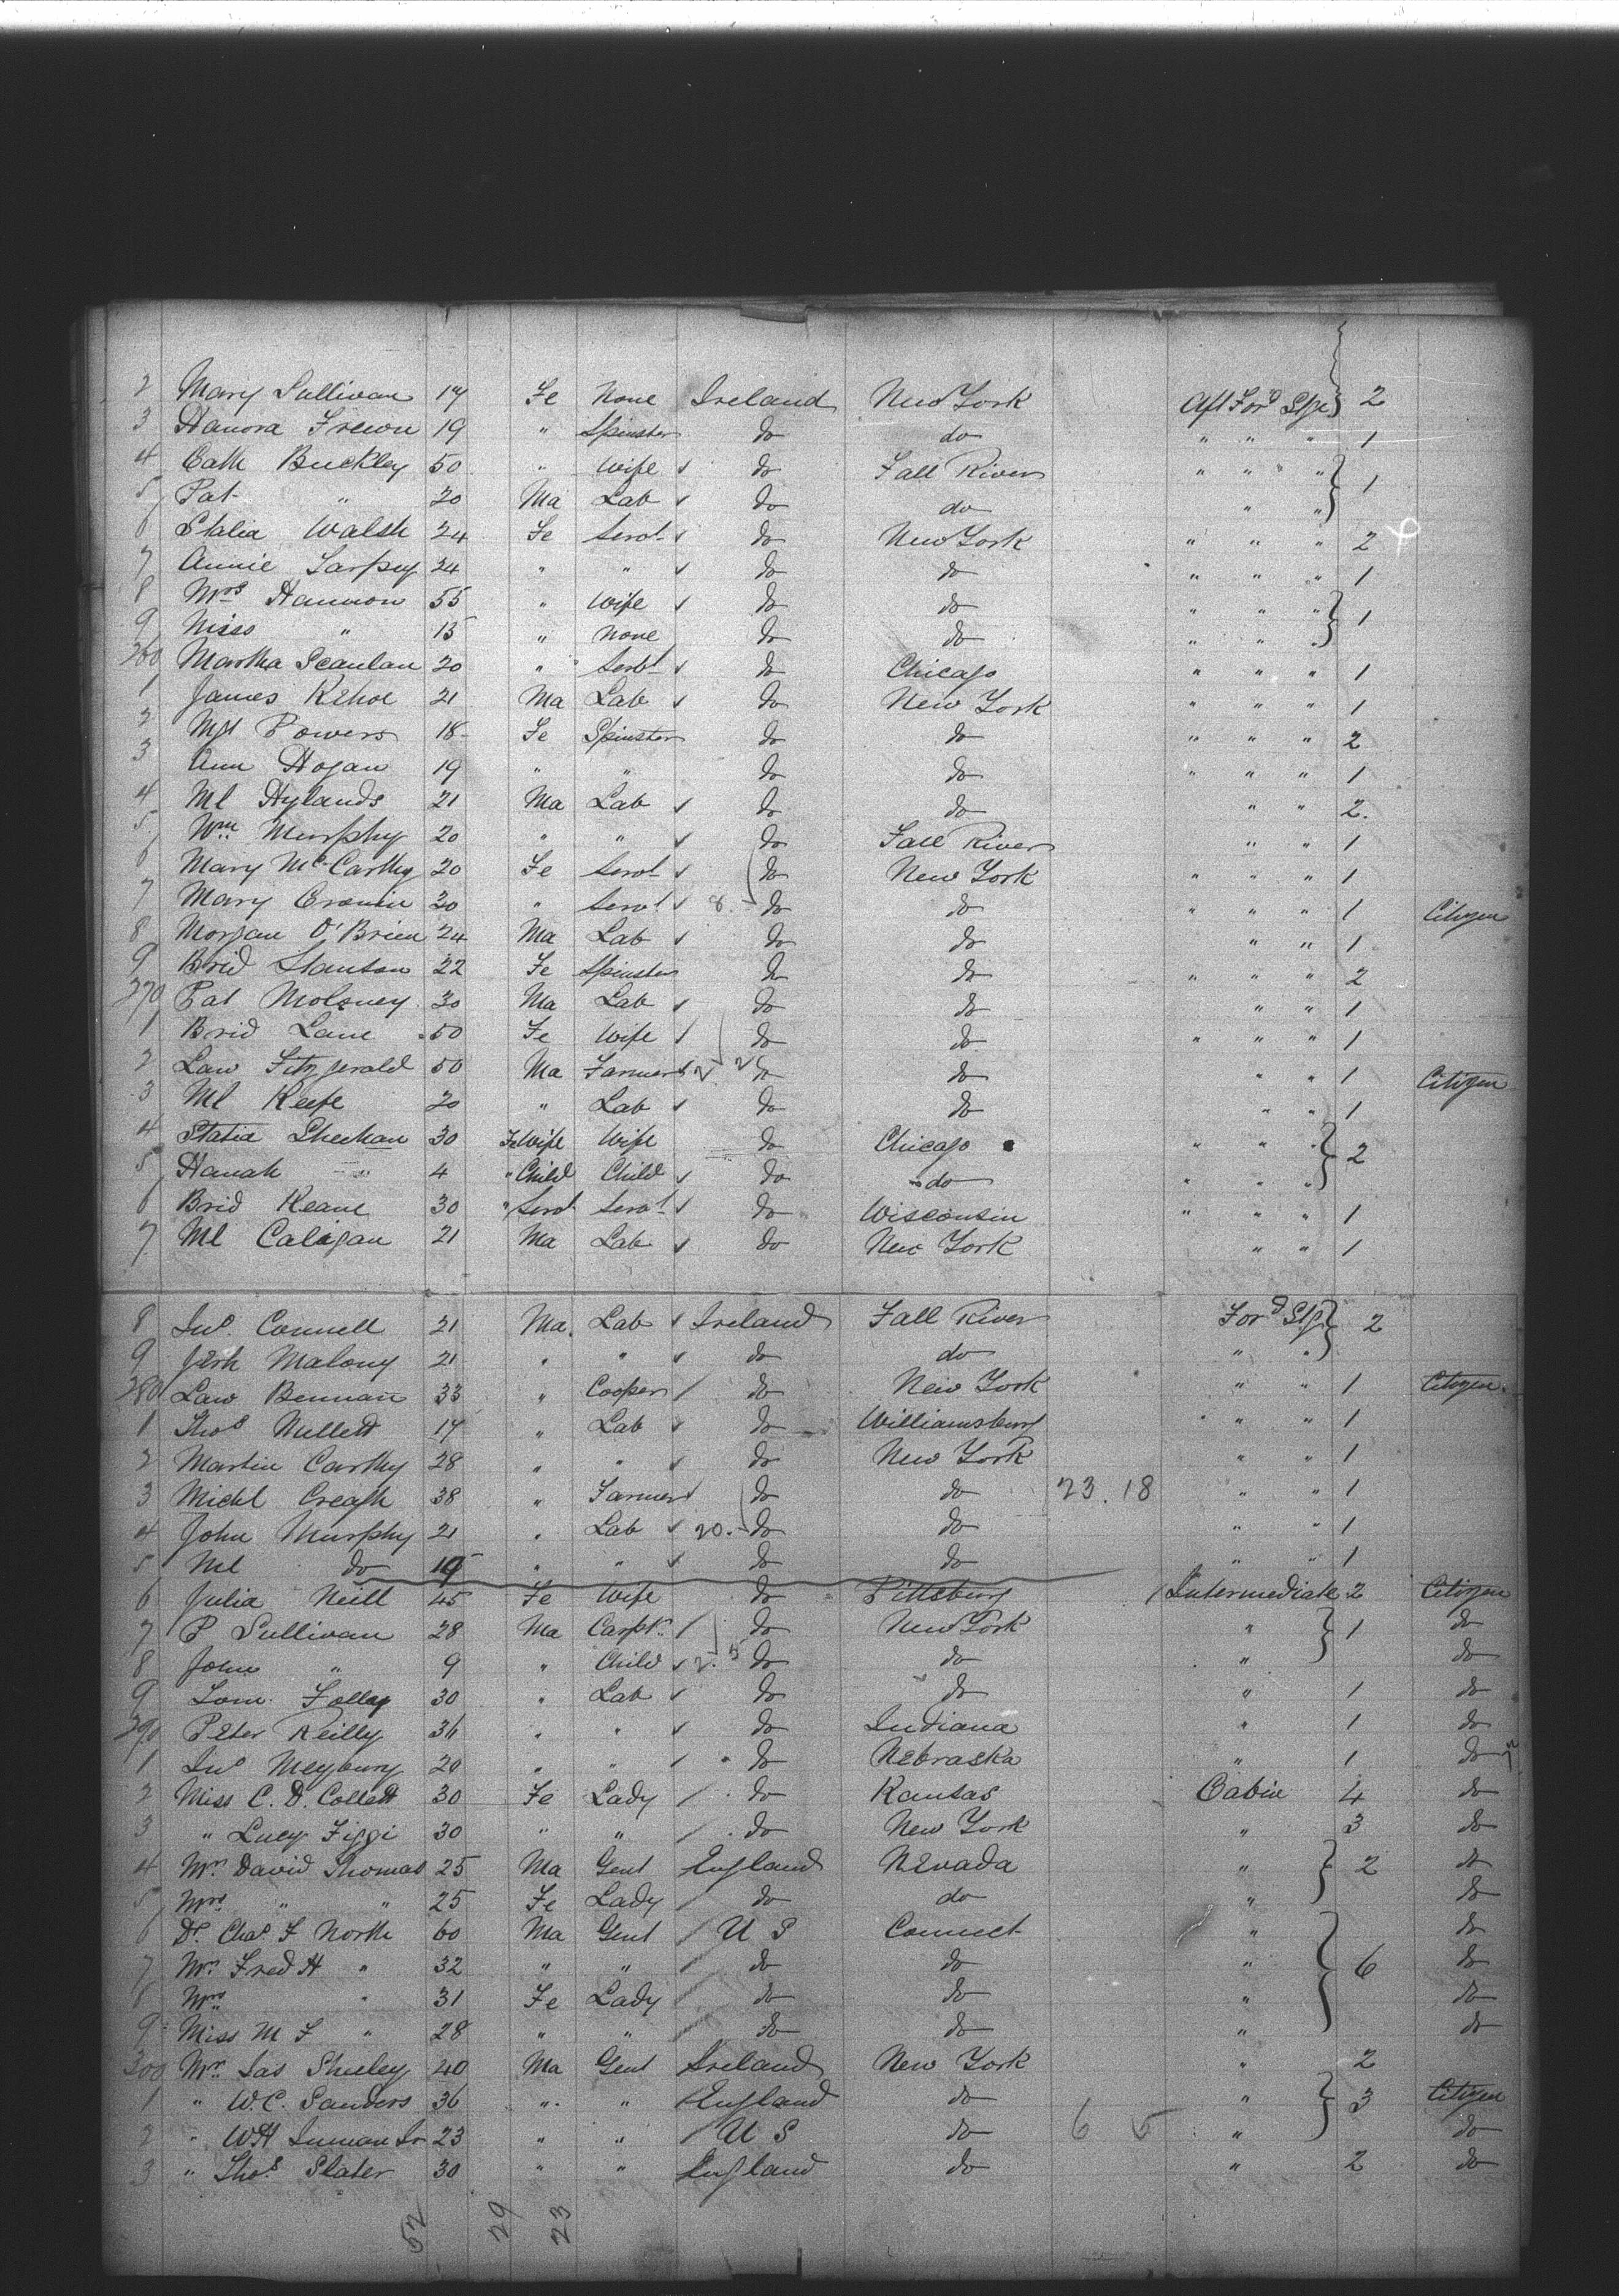 2 Mary Sullivan 17 Fe None Ireland New York Aft Ford Stge 2
3 Hanora Frewen 19 " Spinster do do " " " 1
4 Cath Buckley 50 " Wife do Fall River " " " 1
5 Pat " 20 Ma Lab do do " "
6 Statia Walsh 24 Fe Servt do New York " " " 2
7 Annie Tarpey 24 " " do do " " " 1
8 Mrs Hannon 55 " Wife do do " " " 1
9 Miss " 15 " None do do " " "
260 Martha Scanlan 20 " Servt do Chicago " " " 1
1 James Kehoe 21 Ma Lab do New York " " " 1
2 Mgt Powers 18 Fe Spinster do do " " " 2
3 Ann Hogan 19 " " do do " " " 1
4 Ml Hylands 21 Ma Lab do do " " 2.
5 Wm Murphy 20 " " do Fall River " " 1
6 Mary McCarthy 20 Fe Servt do New York " " " 1
7 Mary Cronin 30 " Servt 8. do do " " " 1 Citizen
8 Morgan O'Brien 24 Ma Lab do do " " 1
9 Brid Stanton 22 Fe Spinster do do " " " 2
270 Pat Moloney 30 Ma Lab do do " " 1
1 Brid Lane 50 Fe Wife do do " " " 1
2 Law Fitzgerald 50 Ma Farmer 2 2 do do " " 1 Citizen
3 Ml Keefe 20 " Lab do do " " 1
4 Statia Sheehan 30 Fe Wife Wife do Chicago " " " 2
5 Hanah " 4 " Child Child do do " " "
6 Brid Keane 30 " Servt Servt do Wisconsin " " " 1
7 Ml Caligan 21 Ma Lab do New York " " 1
8 Jno. Connell 21 Ma. Lab Ireland Fall River Ford Stge 2
9 Jerh Malony 21 " " do do " "
280 Law Brennan 33 " Cooper do New York " " 1 Citizen
1 Thos Nullett 17 " Lab do Williamsburg " " 1
2 Martin Carthy 28 " " do New York " " 1
3 Michl Creagh 38 " Farmer do do 23. 18 " " 1
4 John Murphy 21 " Lab 20. do do " " 1
5 Ml do 19 " " do do " " 1
6 Julia Neill 45 Fe Wife do Pittsburg Intermediate 2 Citizen
7 P Sullivan 28 Ma Carptr do New York " 1 do
8 John " 9 " Child 2. 5 do do " do
9 Tom Folley 30 " Lab do do " 1 do
290 Peter Reilly 36 " " do Indiana " 1 do
1 Jno Meybury 20 " " do Nebraska " 1 do
2 Miss C. D. Collett 30 Fe Lady do Kansas Cabin 4 do
3 " Lucy Figgi 30 " " do New York " 3 do
4 Mr. David Thomas 25 Ma Gent England Nevada " 2 do
5 Mrs " " 25 Fe Lady do do " do
6 Dr. Chas F North 60 Ma Gent U S Connect " 6 do
7 Mr. Fred H " 32 " " do do " do
8 Mrs " 31 Fe Lady do do " do
9 Miss M F " 28 " " do do " do
300 Mr. Jas Sheeley 40 Ma Gent Ireland New York " 2
1 " W. C. Sanders 36 " " England do " 3 Citizen
2 " WH Inman Jr 23 " " U S do 6 5 " do
3 " Thos Slater 30 " " England do " 2 do
52 29 23